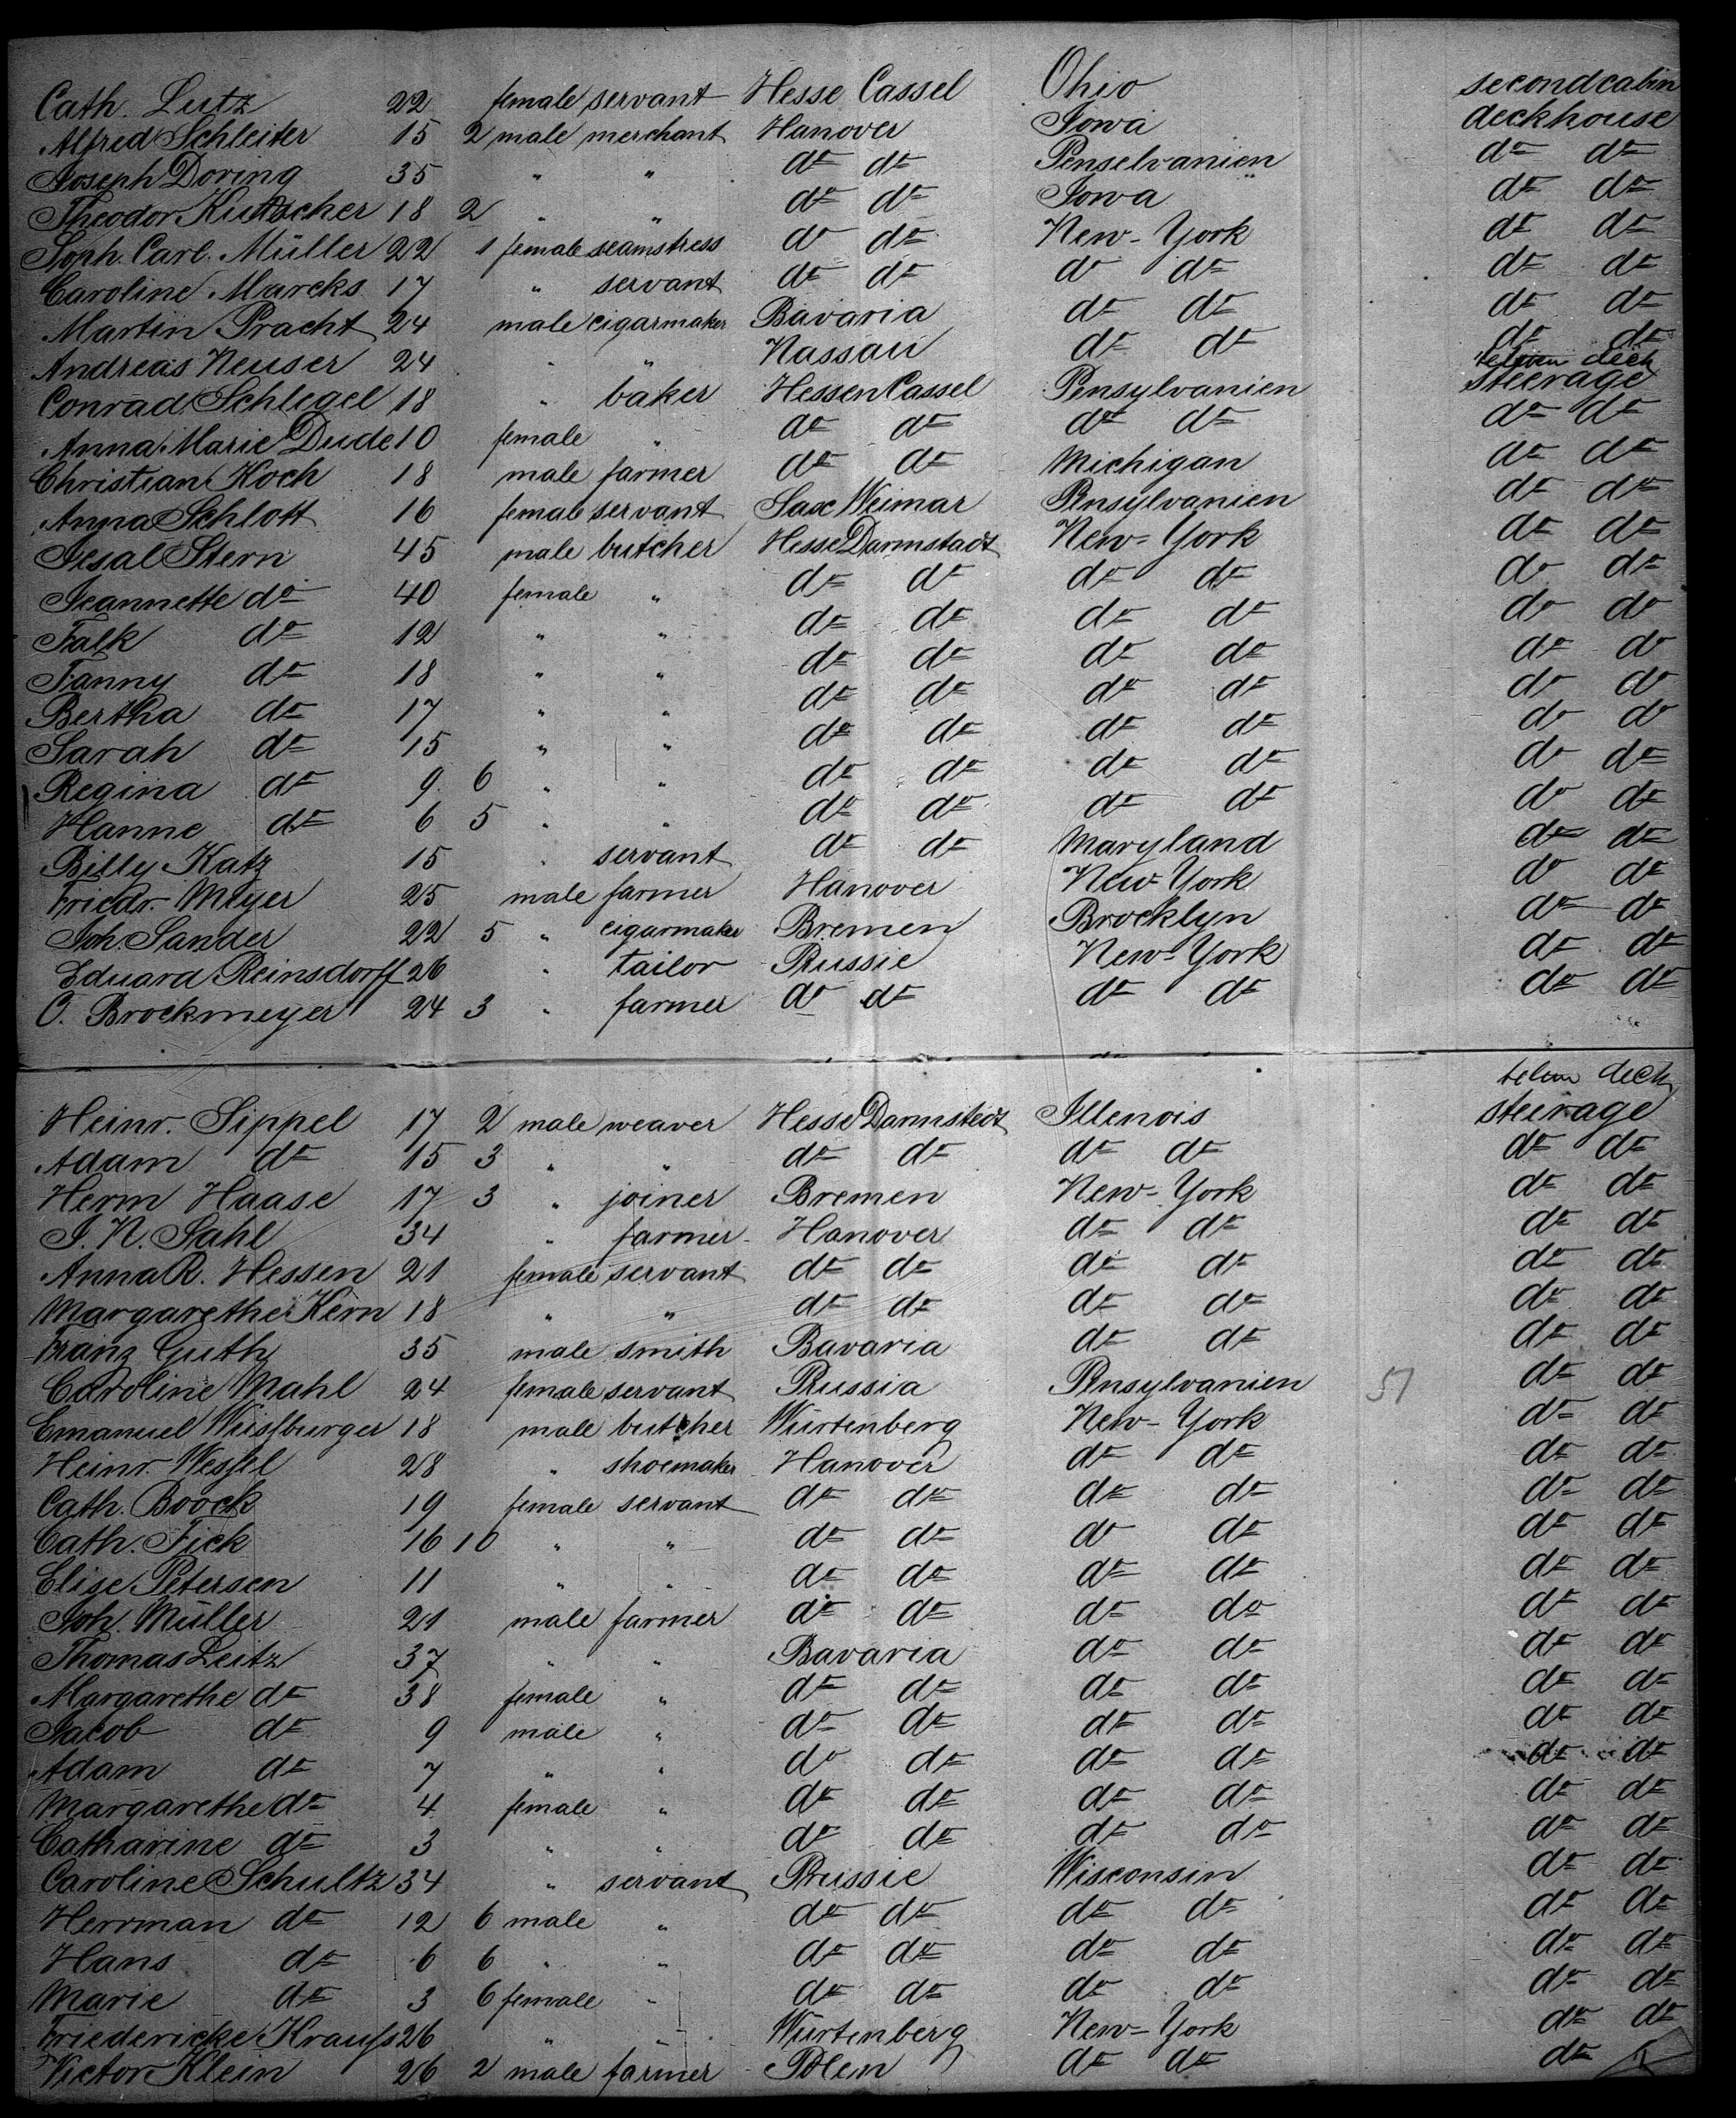 Cath. Lutz 22 female servant Hesse Cassel Ohio second cabin
Alfred Schleiter 15 2 male merchant Hanover Iowa deckhouse
Joseph Doring 35 " " do do Penselvanien do do
Theodor Kutscher 18 2 " " do do Iowa do do
Soph. Carl. Müller 22 1 female seamstress do do New-York do do
Caroline Marcks 17 " servant do do do do do do
Martin Pracht 24 male cigarmaker Bavaria do do do do
Andreas Neuser 24 " " Nassau do do do do
deck
Conrad Schlegel 18 " baker Hessen Cassel Pensylvanien steerage
Anna Marie Dude 10 female " do do do do do do
Christian Koch 18 male farmer do do Michigan do do
Anna Schlott 16 female servant Sax Weimar Pensylvanien do do
Iesal Stern 45 male butcher Hesse Darmstadt New-York do do
Jeannette do 40 female " do do do do do do
Falk do 12 " " do do do do do do
Fanny do 18 " " do do do do do do
Bertha do 17 " " do do do do do do
Sarah do 15 " " do do do do do do
Regina do 9 6 " " do do do do do do
Hanne do 6 5 " " do do do do do do
Billy Katz 15 " servant do do Maryland do do
Friedr. Meyer 25 male farmer Hanover New-York do do
Joh. Sander 22 5 " cigarmaker Bremen Brocklyn do do
Eduard Reinsdorff 26 " tailor Prussie New-York do do
O. Brockmeyer 24 3 " farmer do do do do do do
deck
Heinr. Sippel 17 2 male weaver Hesse Darmstedt Illenois steerage
Adam do 15 3 " " do do do do do do
Herm Haase 17 3 " joiner Bremen New-York do do
J. N. Sahl 34 " farmer Hanover do do do do
Anna R. Hessen 21 female servant do do do do do do
Margarethe Kern 18 " " do do do do do do
Franz Guth 35 male smith Bavaria do do do do
Caroline Mahl 24 female servant Prussia Pensylvanien 51 do do
Emanuel Wussburger 18 male butcher Würtenberg New-York do do
Heinr. Wessel 28 " shoemaker Hanover do do do do
Cath. Boock 19 female servant do do do do do do
Cath. Fick 16 10 " " do do do do do do
Elise Petersen 11 " " do do do do do do
Joh. Müller 21 male farmer do do do do do do
Thomas Leitz 37 " " Bavaria do do do do
Margarethe do 38 female " do do do do do do
Jacob do 9 male " do do do do do do
Adam do 7 " " do do do do do do
Margarethe do 4 female " do do do do do do
Catharine do 3 " " do do do do do do
Caroline Schultz 34 " servant Prussie Wisconsin do do
Herrman do 12 6 male " do do do do do do
Hans do 6 6 " " do do do do do do
Marie do 3 6 female " do do do do do do
Friedericke Krauss 26 " " Würtenberg New-York do do
Victor Klein 26 2 male farmer Polen do do do